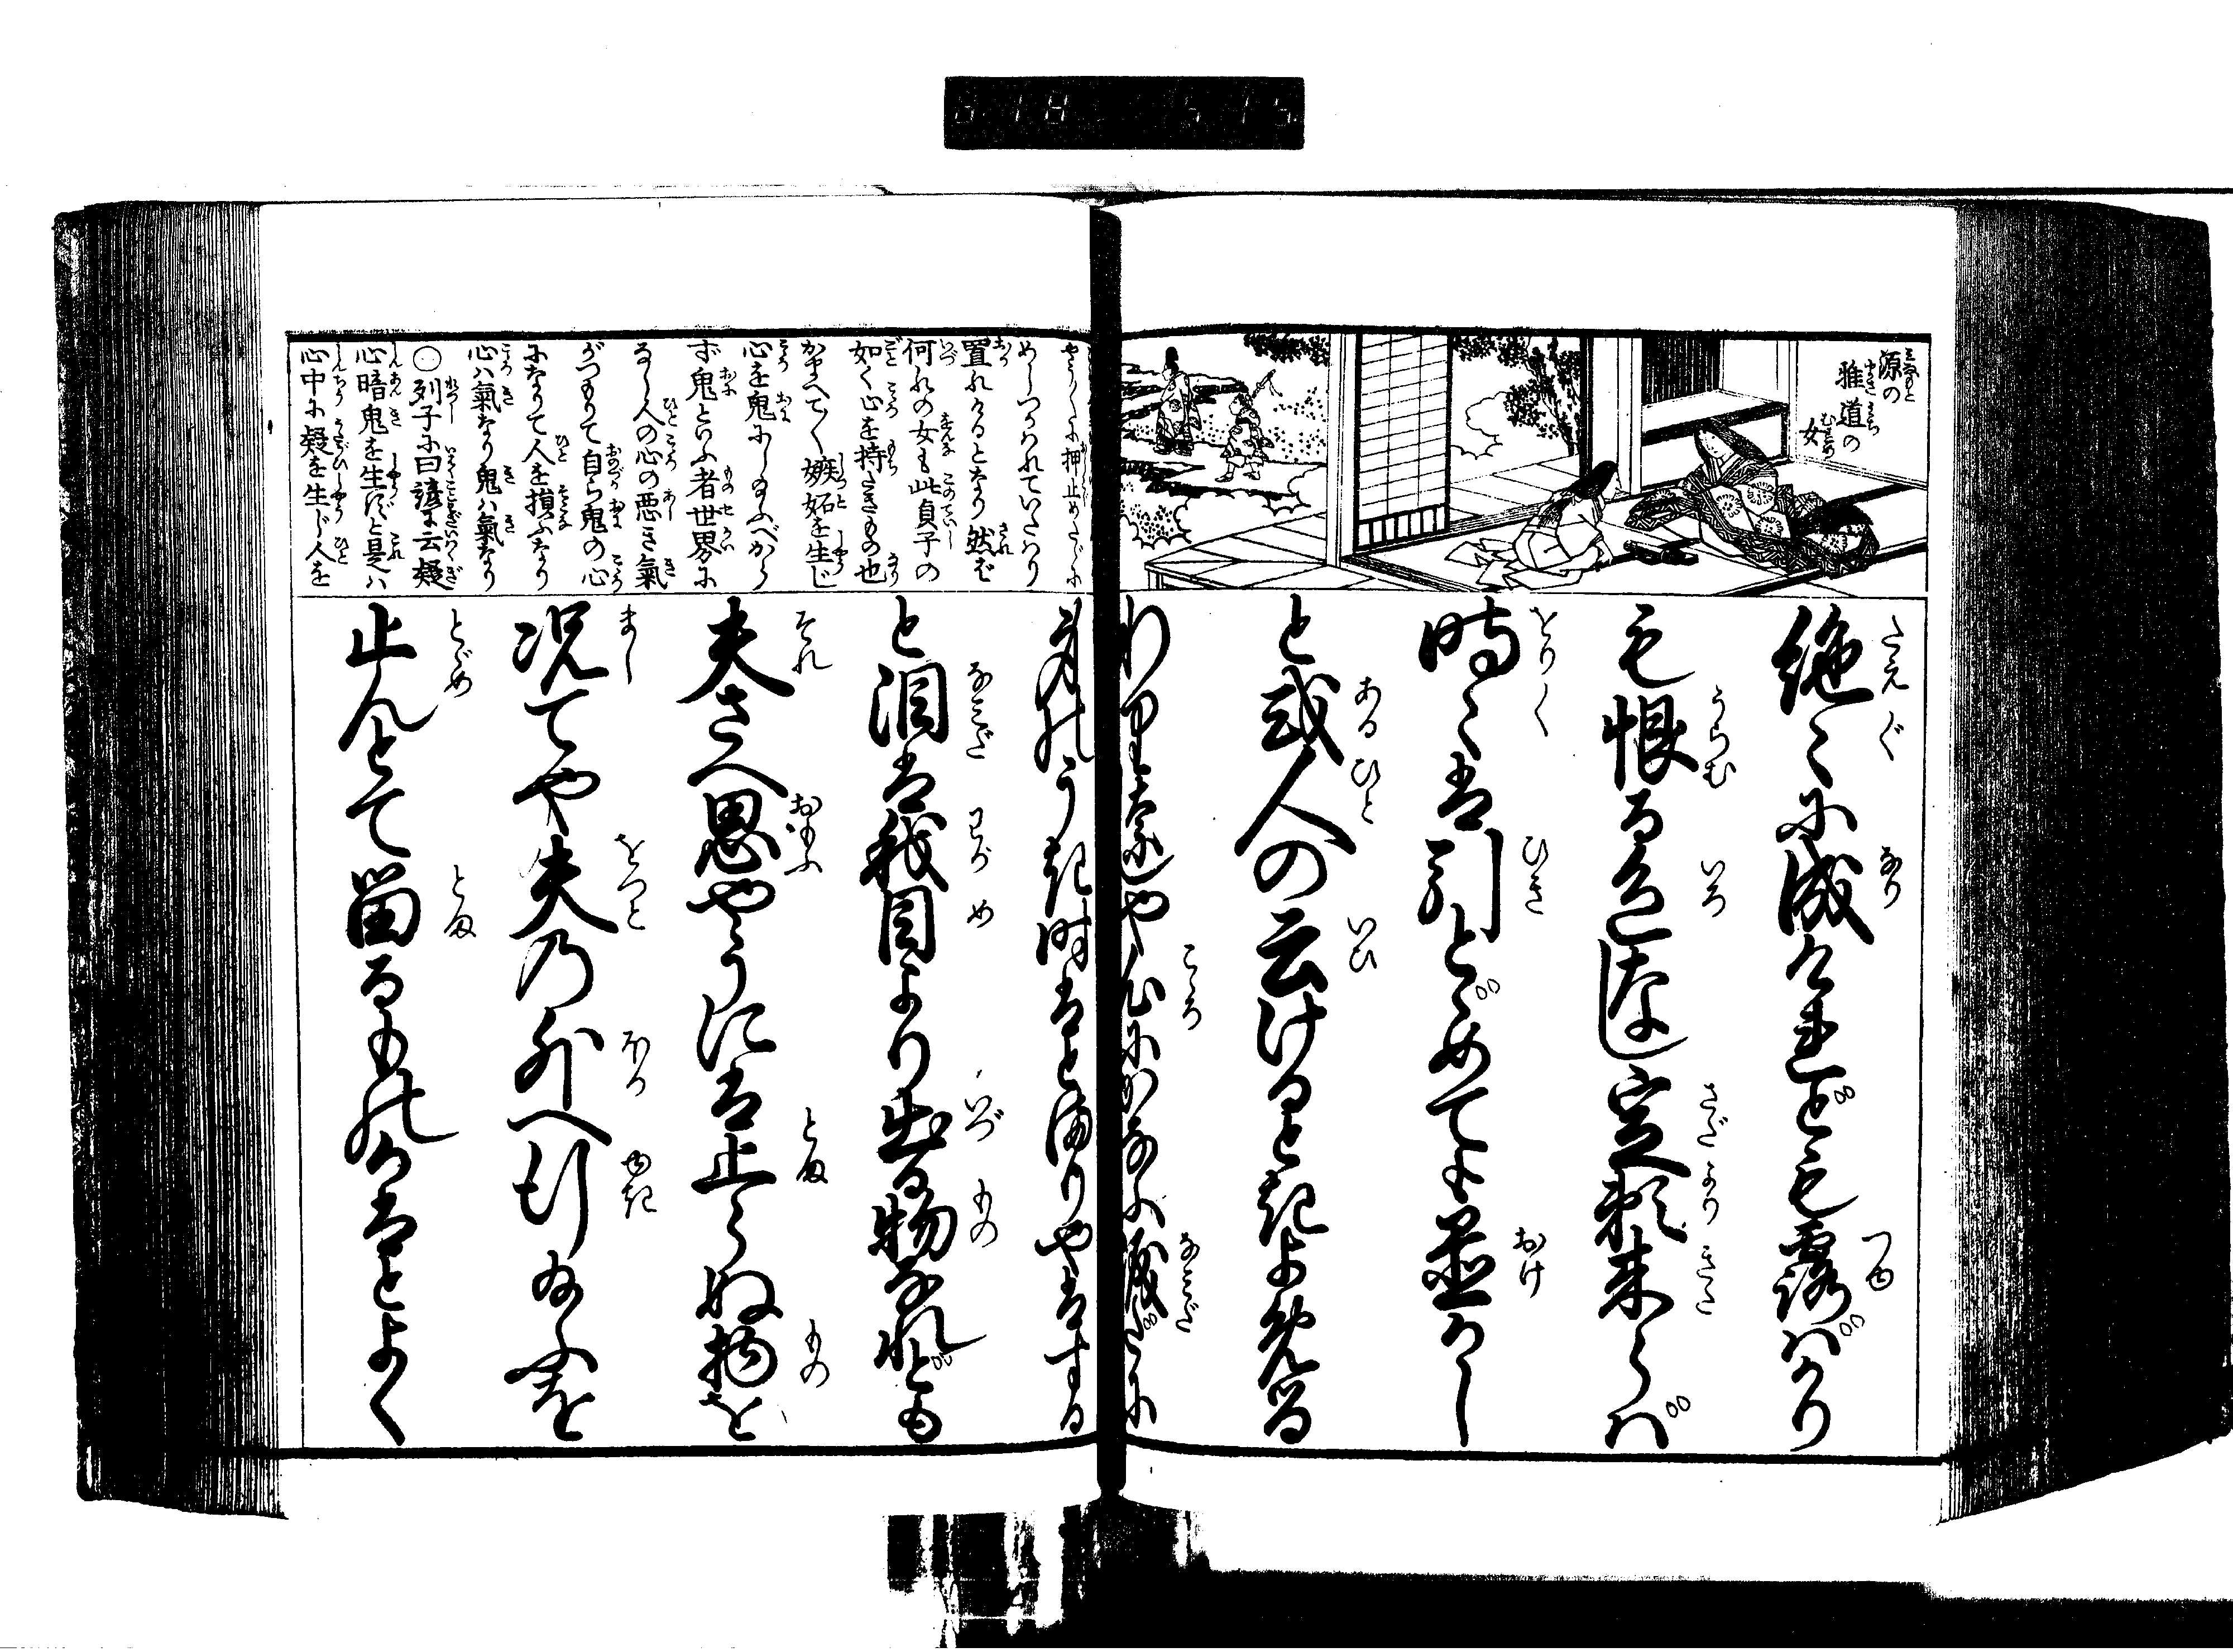 源の
雅道の
女
絶〻に成けれども露ばかり
も恨る色なし定頼来らば
時〻は引とゞめても置かし
と或人の云けるとき よめる
わりなしや心にかなふ涙だに
身のうき時はとまりやはする
と泪は我目より出る物なれども
夫さへ思やうには止らぬ物を
况てや夫の外へ行給ふを
止んとて留るものかはとよく
やうに押止めたゞに
めしつかはれていたはり
置れけるとなり然ば
何れの女も此貞子の
如く心を持たきもの也
かまへて〳〵嫉妬を生じ
心を鬼にし給ふべから
ず鬼といふ者世界に
なし人の心の悪き氣
がつもりて自ら鬼の心
になりて人を損ふなり
心ハ氣なり鬼ハ氣なり
○列子に曰諺に云疑
心暗鬼を生ずと是ハ
心中に疑を生じ人を